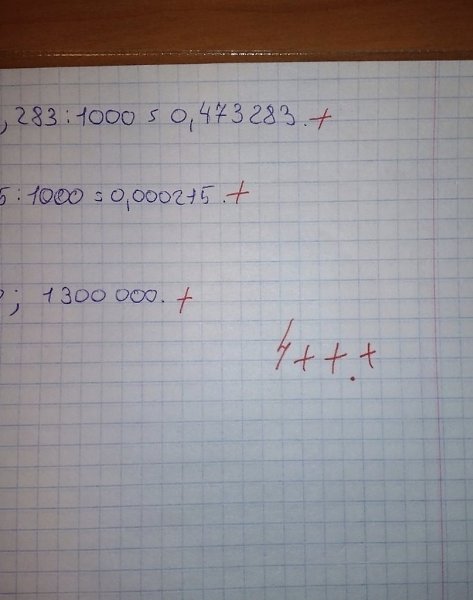 ,283:1000 = 0,473283. +
5:1000 = 0,000215. +
; 1300 000. +
4+++.